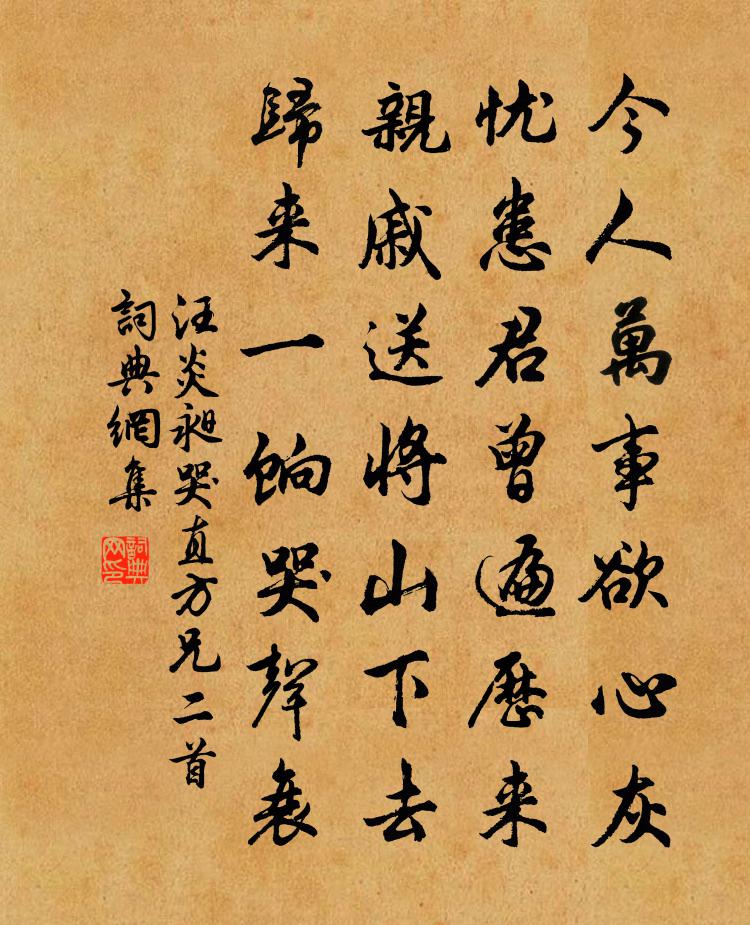 今人萬事欲心灰
忧患君曾遍歷来
親戚送將山下去
歸来一餉哭聲衰
汪炎昶哭直方兄二首
詞典網集
詞典网印